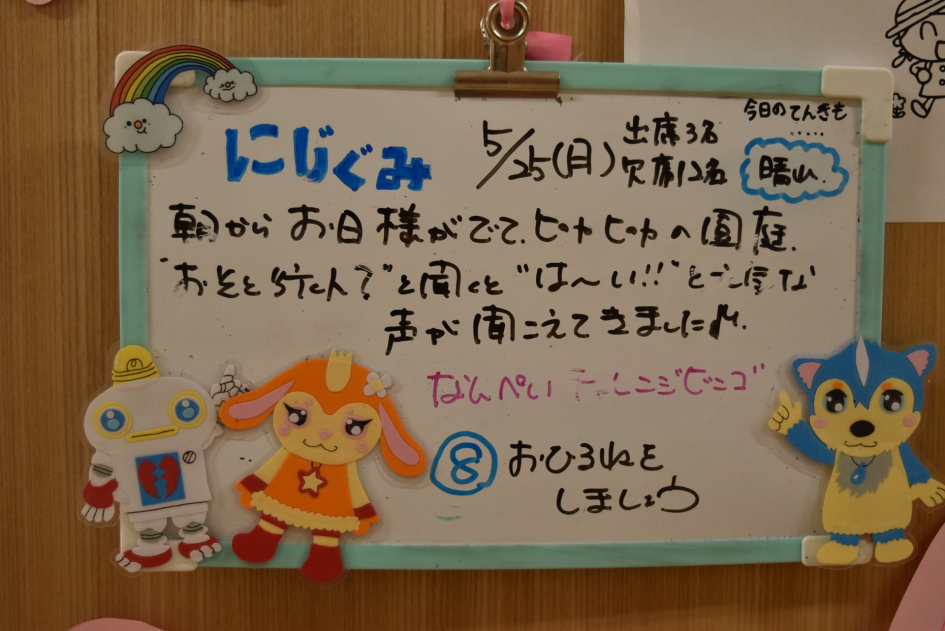 にじぐみ
5/25(月)
出席3名
欠席12名
今日のてんきも
.....
晴れ.
朝からお日様がでて、ピカピカの園庭.
"おそと行く人?"と聞くと"は〜い!!"と元気な
声が聞こえてきました♪.
なんぺいチャレンジビンゴ
⑧ おひるねを
しましょう